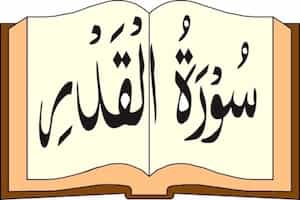 سُوْرَةُ الْقَدْرِ